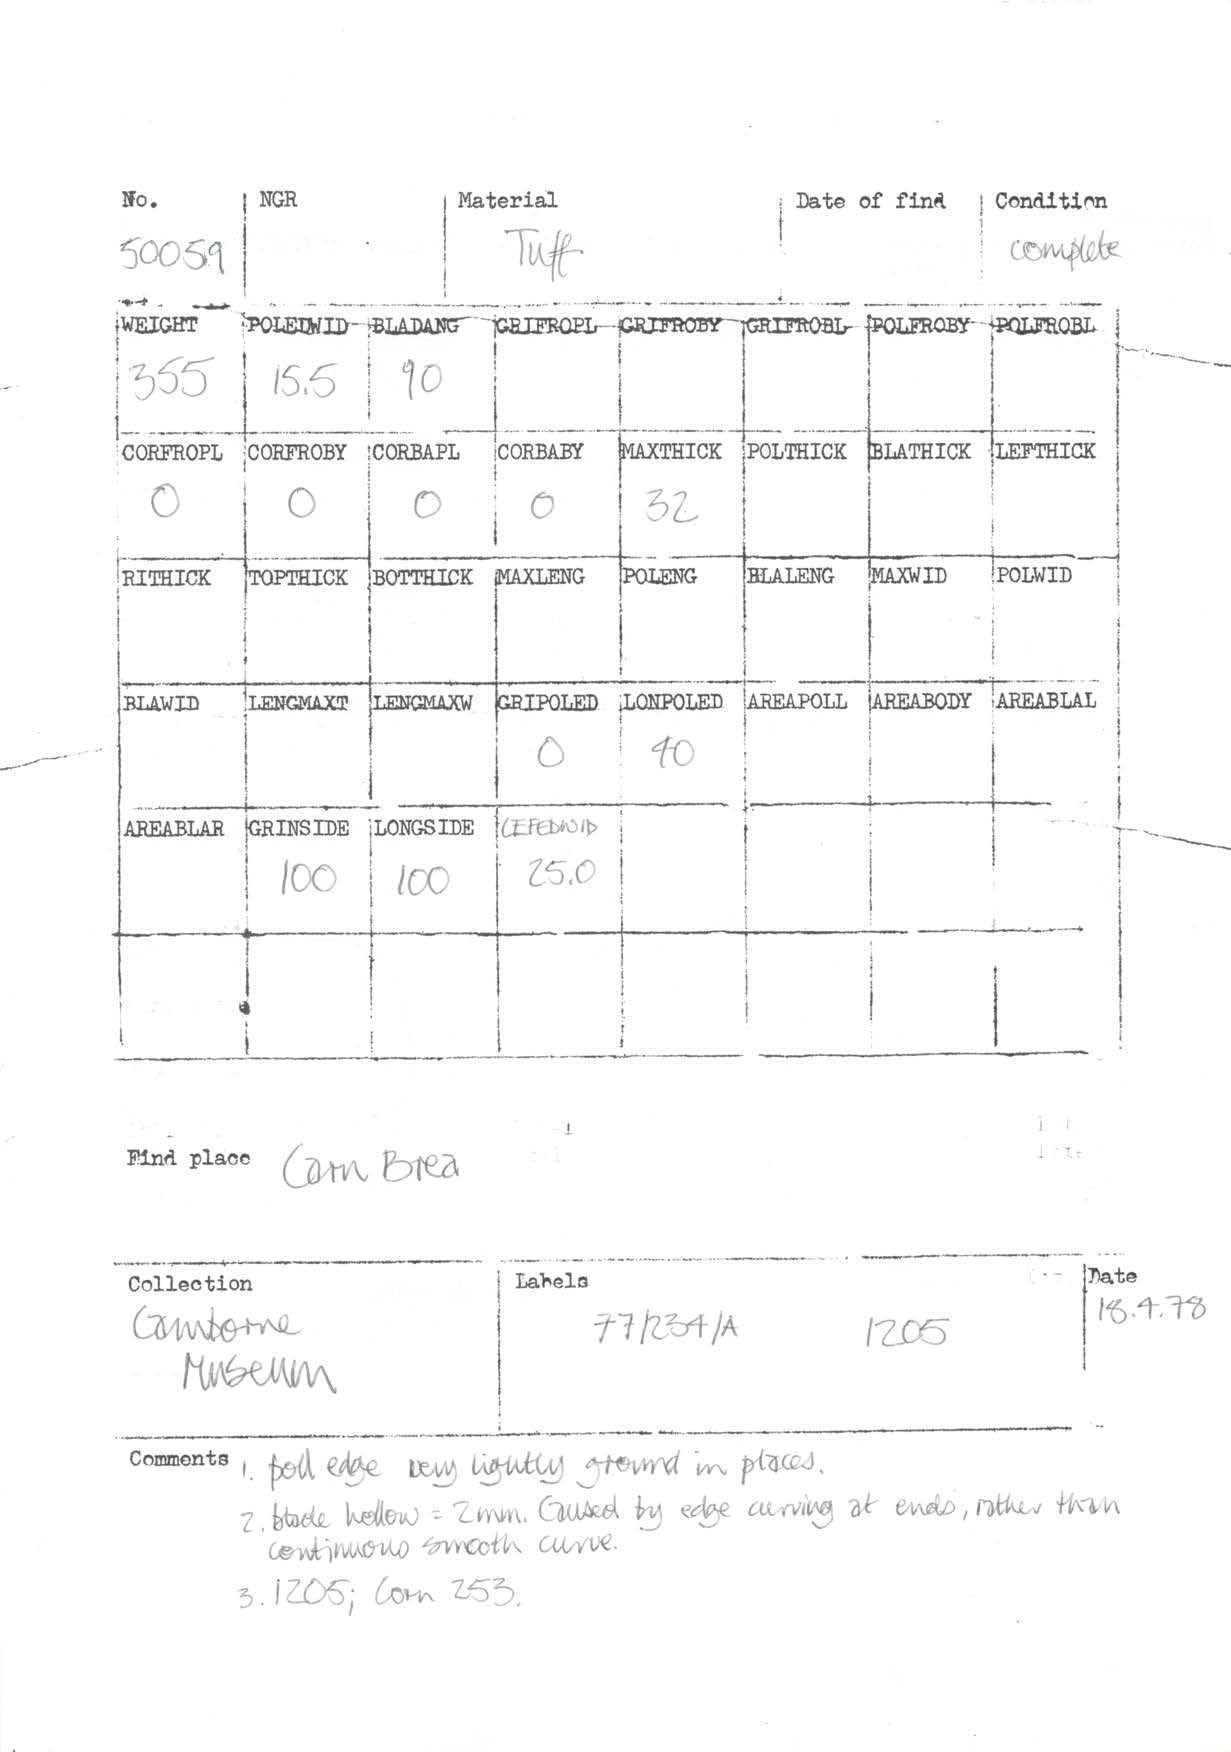 No. NGR Material Date of find Condition
50059 Tuff complete
WEIGHT POLEDWID BLADANG GRIFROPL GRIFROBY GRIFROBL POLFROBY POLFROBL
355 15.5 90
CORFROPL CORFROBY CORBAPL CORBABY MAXTHICK POLTHICK BLATHICK LEFTHICK
0 0 0 0 32
RITHICK TOPTHICK BOTTHICK MAXLENG POLENG BLALENG MAXWID POLWID
BLAWID LENGMAXT LENGMAXW GRIPOLED LONPOLED AREAPOLL AREABODY AREABLAL
0 40
AREABLAR GRINSIDE LONGSIDE LEFEDWID
100 100 25.0
Find place Carn Brea
Collection Labels Date
Camborne 77/234/A 1205 18.4.78
Museum
Comments 1. poll edge very lightly ground in places.
2. blade hollow = 2mm. Caused by edge curving at ends, rather than
continuous smooth curve.
3. 1205; Corn 253.